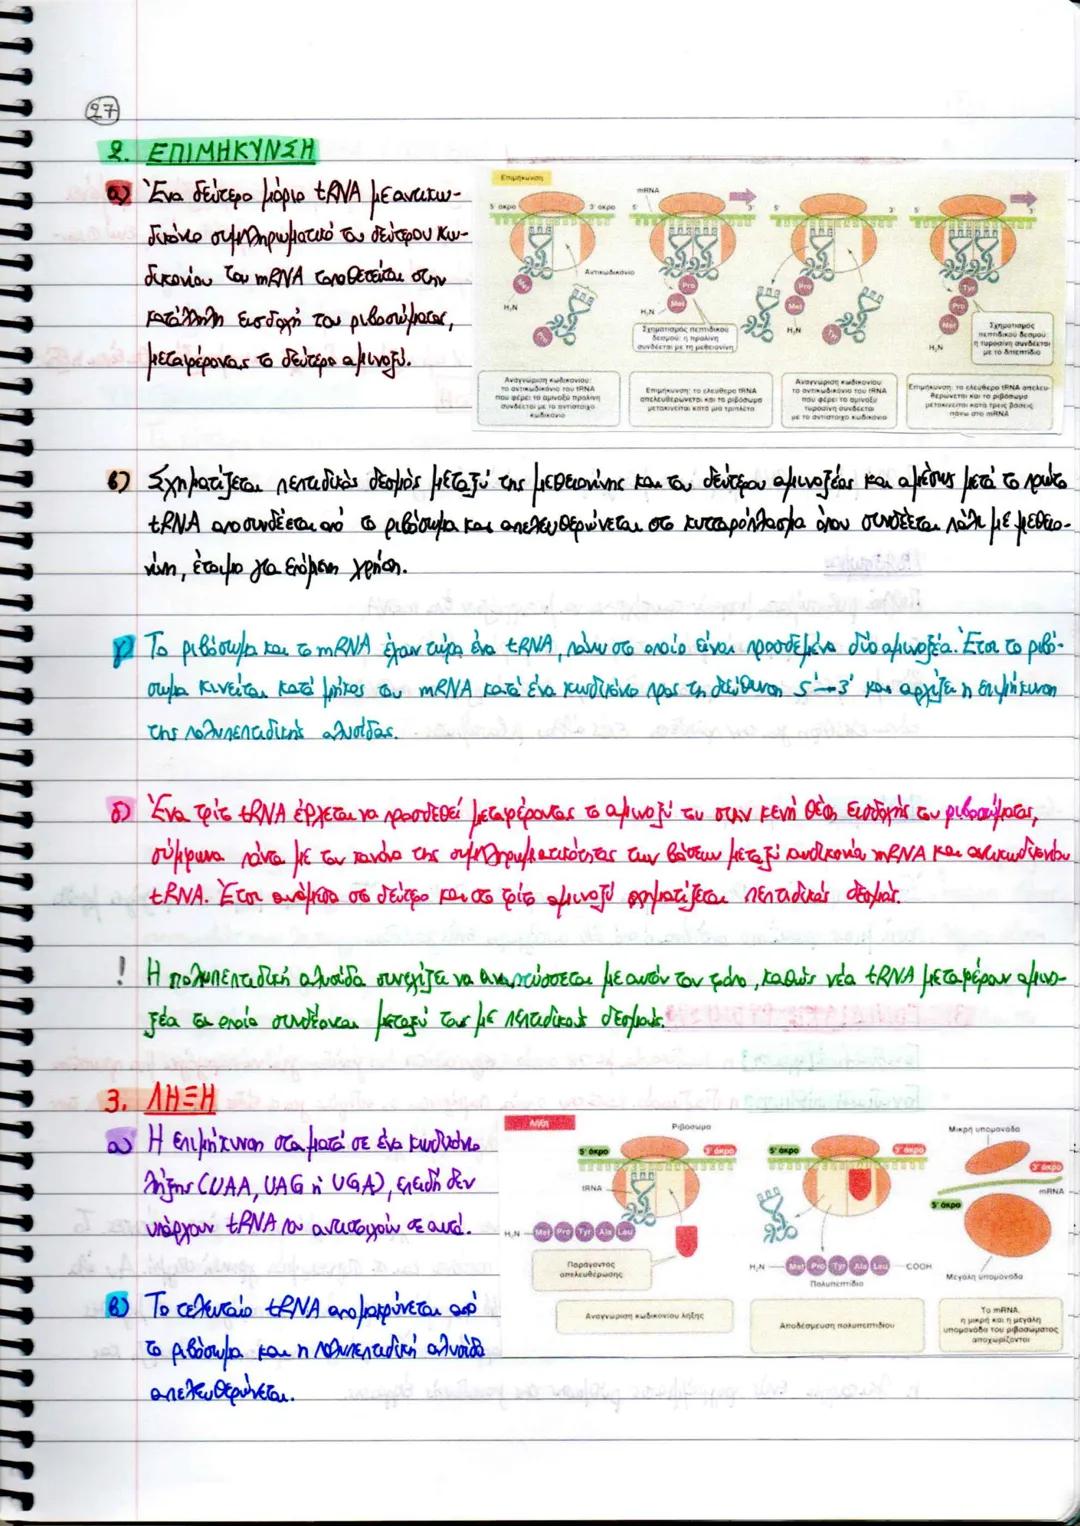 27
2. ΕΠΙΜΗΚΥΝΣΗ
α) Ένα δεύτερο μόριο tRNA με αντικω-
δικόνιο συμπληρωματικό του δεύτερου κω-
δικονίου του mRNA τοποθετείται στην
κατάλληλη εισδοχή του ριβοσώματος,
μεταφέροντας το δεύτερο αμινοξύ.
Επιμήκυνση
mRNA
5' άκρο
3' άκρο
5'
3'
5'
3'
5'
3'
Αντικωδικόνιο
Met
H₂N
Pro
Met
H₂N
Pro
Met
H₂N
Tyr
Tyr
Pro
Met
H₂N
Σχηματισμός πεπτιδικού
δεσμού: η προλίνη
συνδέεται με τη μεθειονίνη
Σχηματισμός
πεπτιδικού δεσμού:
η τυροσίνη συνδέεται
με το διπεπτίδιο
Αναγνώριση κωδικονίου:
το αντικωδικόνιο του tRNA
που φέρει το αμινοξύ προλίνη
συνδέεται με το αντίστοιχο
κωδικόνιο
Επιμήκυνση: το ελεύθερο tRNA
απελευθερώνεται και το ριβόσωμα
μετακινείται κατά μια τριπλέτα
Αναγνώριση κωδικονίου:
το αντικωδικόνιο του tRNA
που φέρει το αμινοξύ
τυροσίνη συνδέεται
με το αντίστοιχο κωδικόνιο
Επιμήκυνση: το ελεύθερο tRNA απελευ-
θερώνεται και το ριβόσωμα
μετακινείται κατά τρεις βάσεις
πάνω στο mRNA
β) Σχηματίζεται πεπτιδικός δεσμός μεταξύ της μεθειονίνης και του δεύτερου αμινοξέος και αμέσως μετά το πρώτο
tRNA αποσυνδέεται από το ριβόσωμα και απελευθερώνεται στο κυτταρόπλασμα όπου συνδέεται πάλι με μεθειο-
νίνη, έτοιμο για επόμενη χρήση.
γ) Το ριβόσωμα και το mRNA έχουν τώρα ένα tRNA, πάνω στο οποίο είναι προσδεμένα δύο αμινοξέα. Έτσι το ριβό-
σωμα κινείται κατά μήκος του mRNA κατά ένα κωδικόνιο προς τη διεύθυνση 5'→3' και αρχίζει η επιμήκυνση
της πολυπεπτιδικής αλυσίδας.
δ) Ένα τρίτο tRNA έρχεται να προσδεθεί μεταφέροντας το αμινοξύ του στην κενή θέση εισδοχής του ριβοσώματος,
σύμφωνα πάντα με τον κανόνα της συμπληρωματικότητας των βάσεων μεταξύ κωδικονίου mRNA και αντικωδικονίου
tRNA. Έτσι ανάμεσα στο δεύτερο και στο τρίτο αμινοξύ σχηματίζεται πεπτιδικός δεσμός.
! Η πολυπεπτιδική αλυσίδα συνεχίζει να αναπτύσσεται με αυτόν τον τρόπο, καθώς νέα tRNA μεταφέρουν αμινο-
ξέα τα οποία συνδέονται μεταξύ τους με πεπτιδικούς δεσμούς.
3. ΛΗΞΗ
α) Η επιμήκυνση σταματά σε ένα κωδικόνιο
λήξης (UAA, UAG ή UGA), επειδή δεν
υπάρχουν tRNA που αντιστοιχούν σε αυτά.
β) Το τελευταίο tRNA απομακρύνεται από
το ριβόσωμα και η πολυπεπτιδική αλυσίδα
απελευθερώνεται.
Λήξη
Ριβόσωμα
5' άκρο
3' άκρο
tRNA
H₂N
Met Pro Tyr Ala Leu
Παράγοντας
απελευθέρωσης
Αναγνώριση κωδικονίου λήξης
5' άκρο
3' άκρο
H₂N
Met Pro Tyr Ala Leu
COOH
Πολυπεπτίδιο
Αποδέσμευση πολυπεπτιδίου
Μικρή υπομονάδα
3' άκρο
mRNA
5' άκρο
Μεγάλη υπομονάδα
Το mRNA,
η μικρή και η μεγάλη
υπομονάδα του ριβοσώματος
αποχωρίζονται